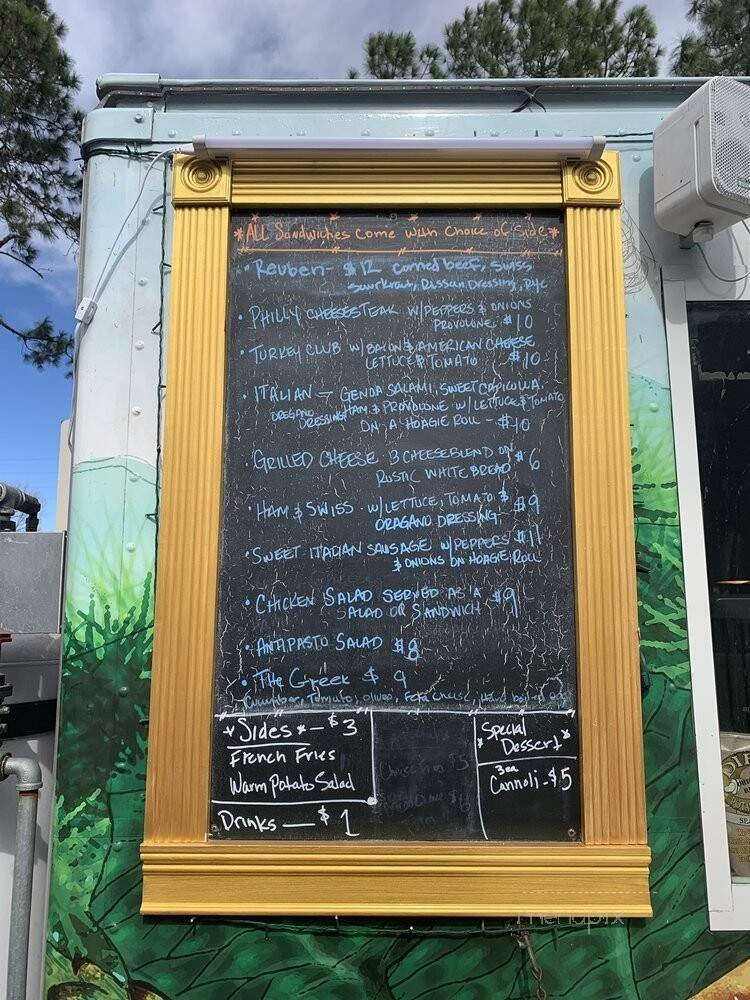 *ALL Sandwiches come with choice of side*
• Reuben - $12 corned beef, swiss
saurkraut, Russan Dressing, Rye
• PHILLY CHEESESTEAK W/PEPPERS & ONIONS
PROVOLONE $10
• TURKEY CLUB W/BACON & AMERICAN CHEESE
LETTUCE & TOMATO $10
• ITALIAN - GENOA SALAMI, SWEET CAPICOLLA,
OREGANO DRESSING HAM & PROVOLONE W/LETTUCE & TOMATO
ON A HOAGIE ROLL - $10
• GRILLED CHEESE 3 CHEESE BLEND ON
RUSTIC WHITE BREAD $6
• HAM & SWISS W/LETTUCE, TOMATO & $9
ORAGANO DRESSING
• SWEET ITALIAN SAUSAGE W/PEPPERS $11
& ONIONS ON HOAGIE ROLL
• CHICKEN SALAD SERVED AS A $9
SALAD OR SANDWICH
• ANTIPASTO SALAD $8
• The Greek $9
Cucumber, Tomato, olives, Feta Cheese, Hard boiled egg
*Sides* - $3
French Fries
Warm Potato Salad
Drinks — $1
Special
*Dessert*
3ea
Cannoli - $5
menupix